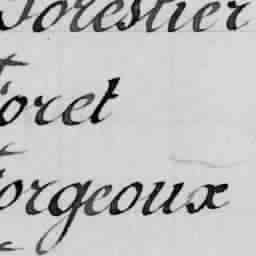 Forestier
Foret
Forgeoux